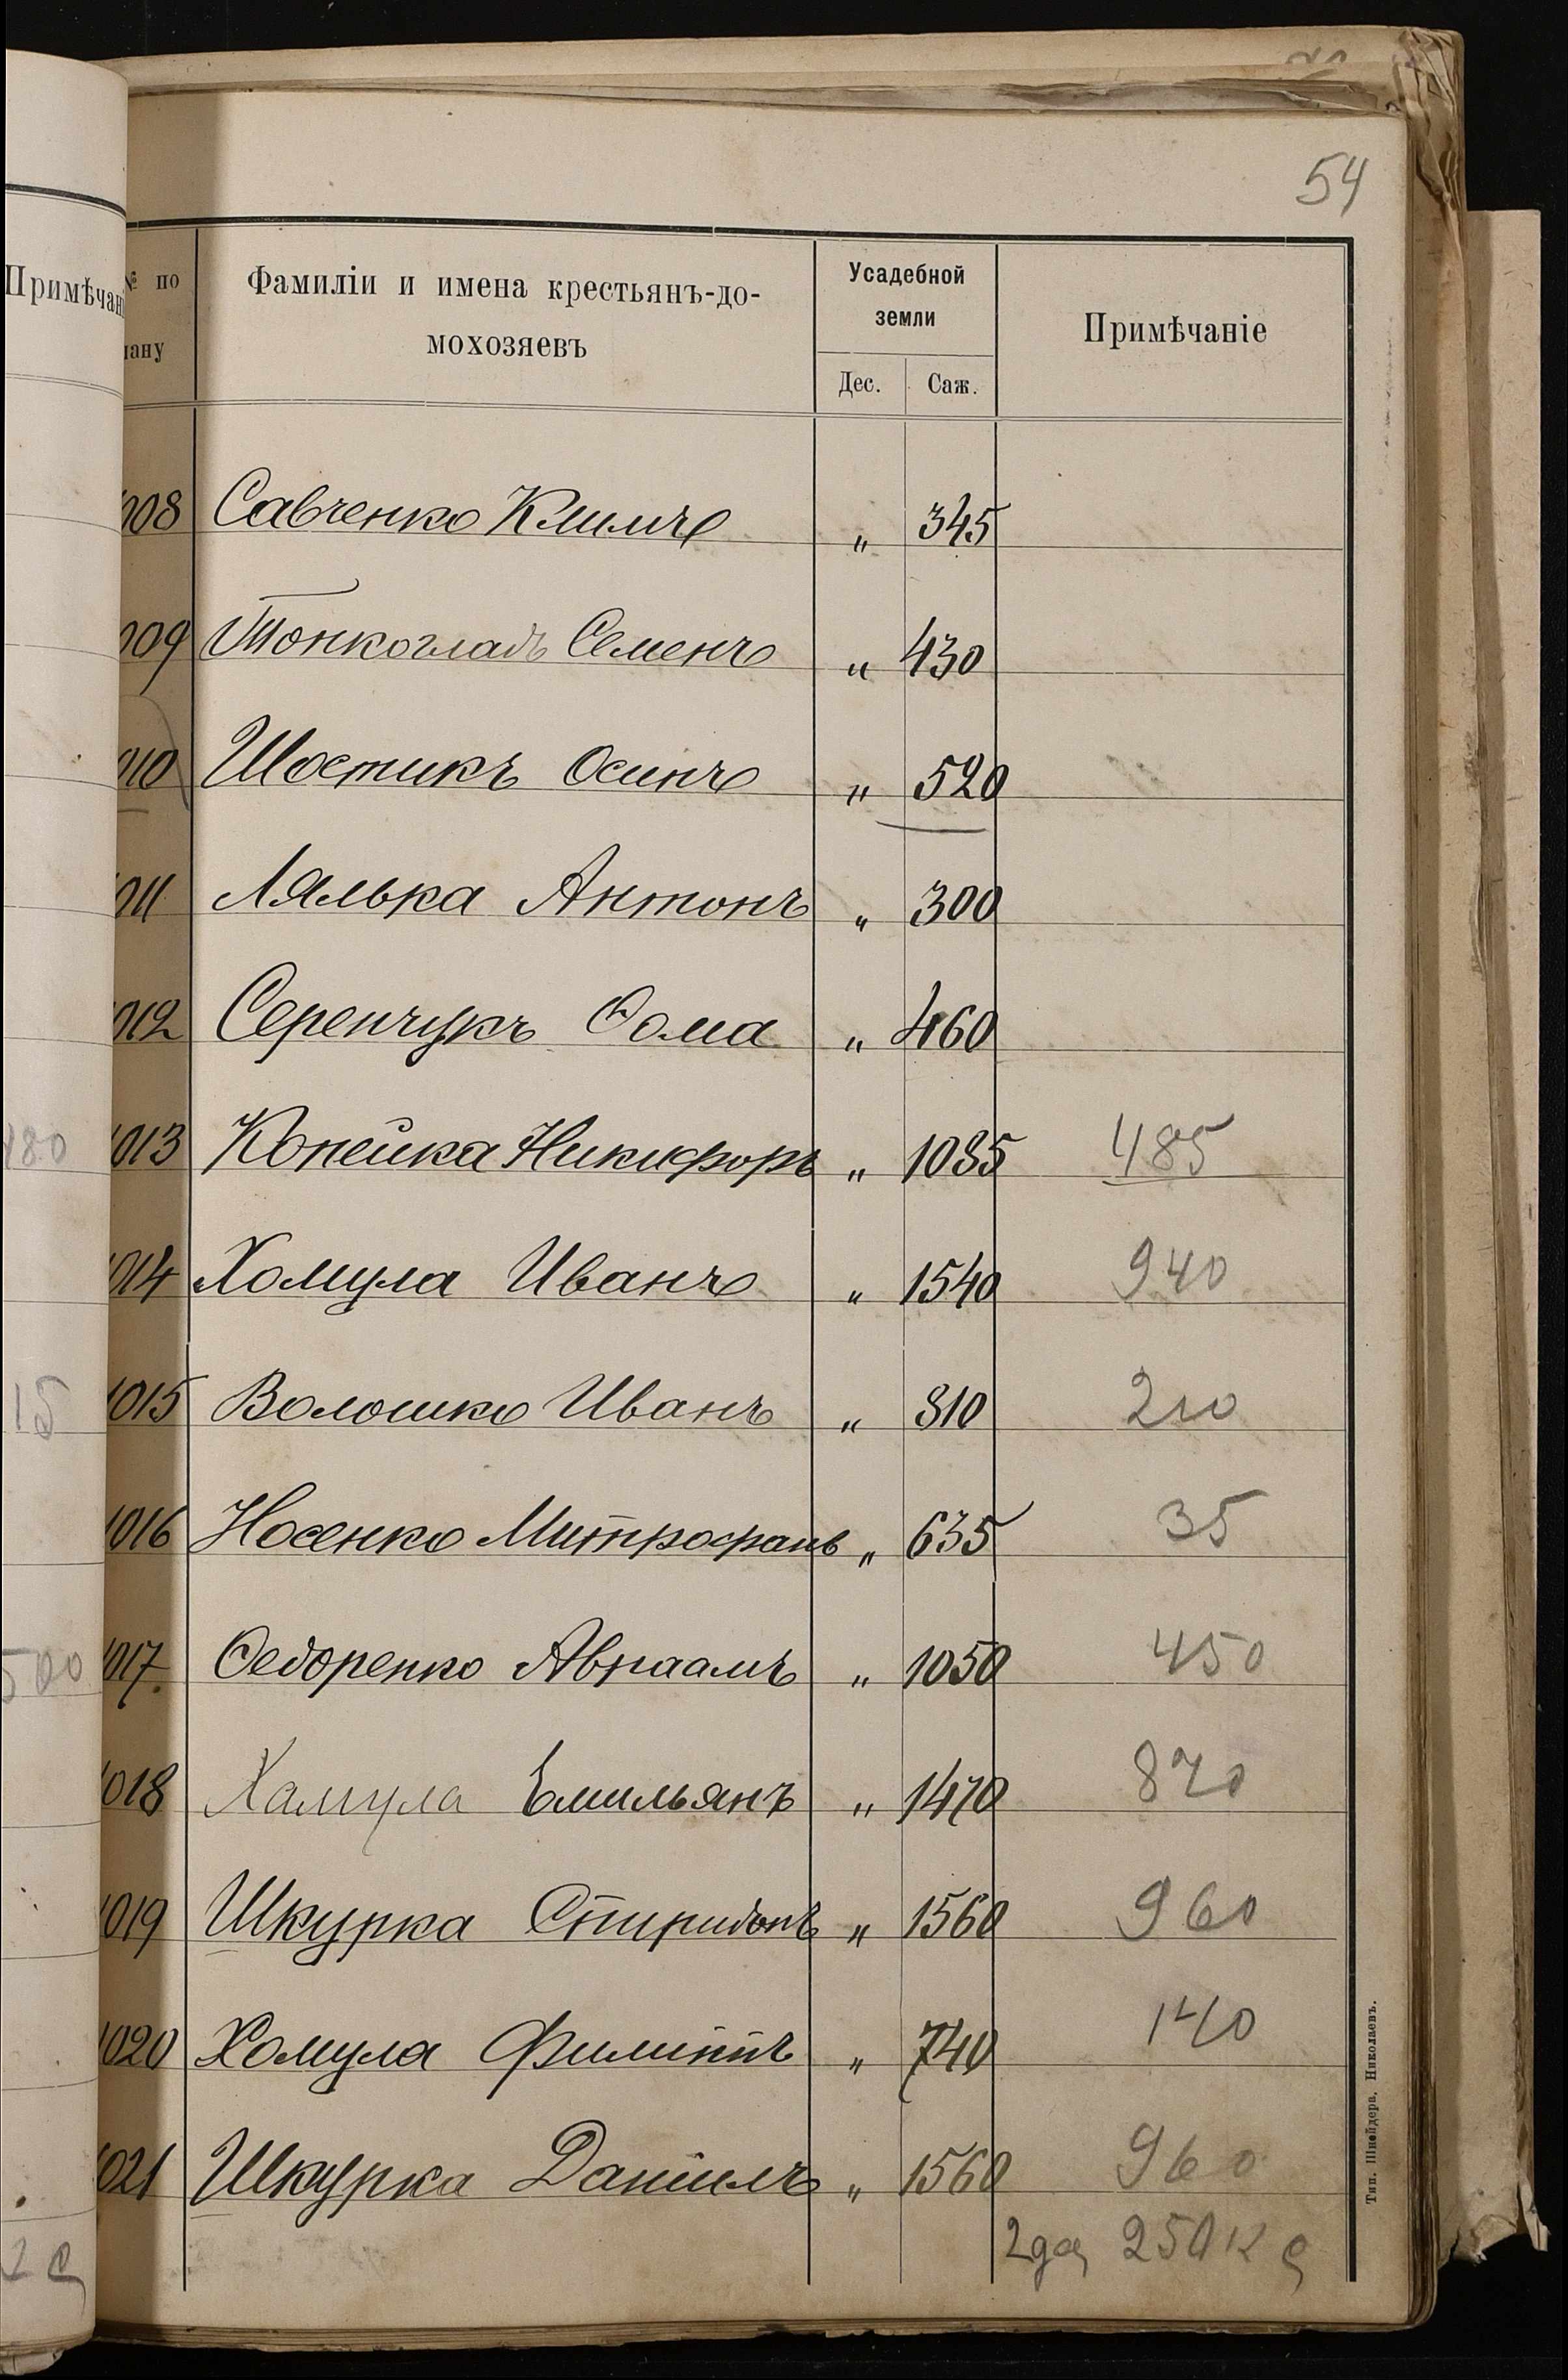 54
Примѣчан
№ по
лану
Фамиліи и имена крестьянъ-до-
мохозяевъ
Усадебной
земли
Дес.
Саж.
Примѣчаніе
1008 Савченко Климъ " 345
1009 Тонкогладъ Семенъ " 430
1010 Шостикъ Осипъ " 520
1011 Лялька Антонъ " 300
1012 Серенчукъ Ѳома " 460
480
1013 Копейка Никифоръ " 1085 485
1014 Хомула Иванъ " 1540 940
15
1015 Волошко Иванъ " 810 210
1016 Носенко Митрофанъ " 635 35
500
1017 Ѳедоренко Авраамъ " 1050 450
1018 Хамула Емильянъ " 1470 870
1019 Шкурка Спиридонъ " 1560 960
1020 Хомула Филиппъ " 740 140
1021 Шкурка Даніилъ " 1560 960
2 250
Тип. Шнейдера, Николаевъ.